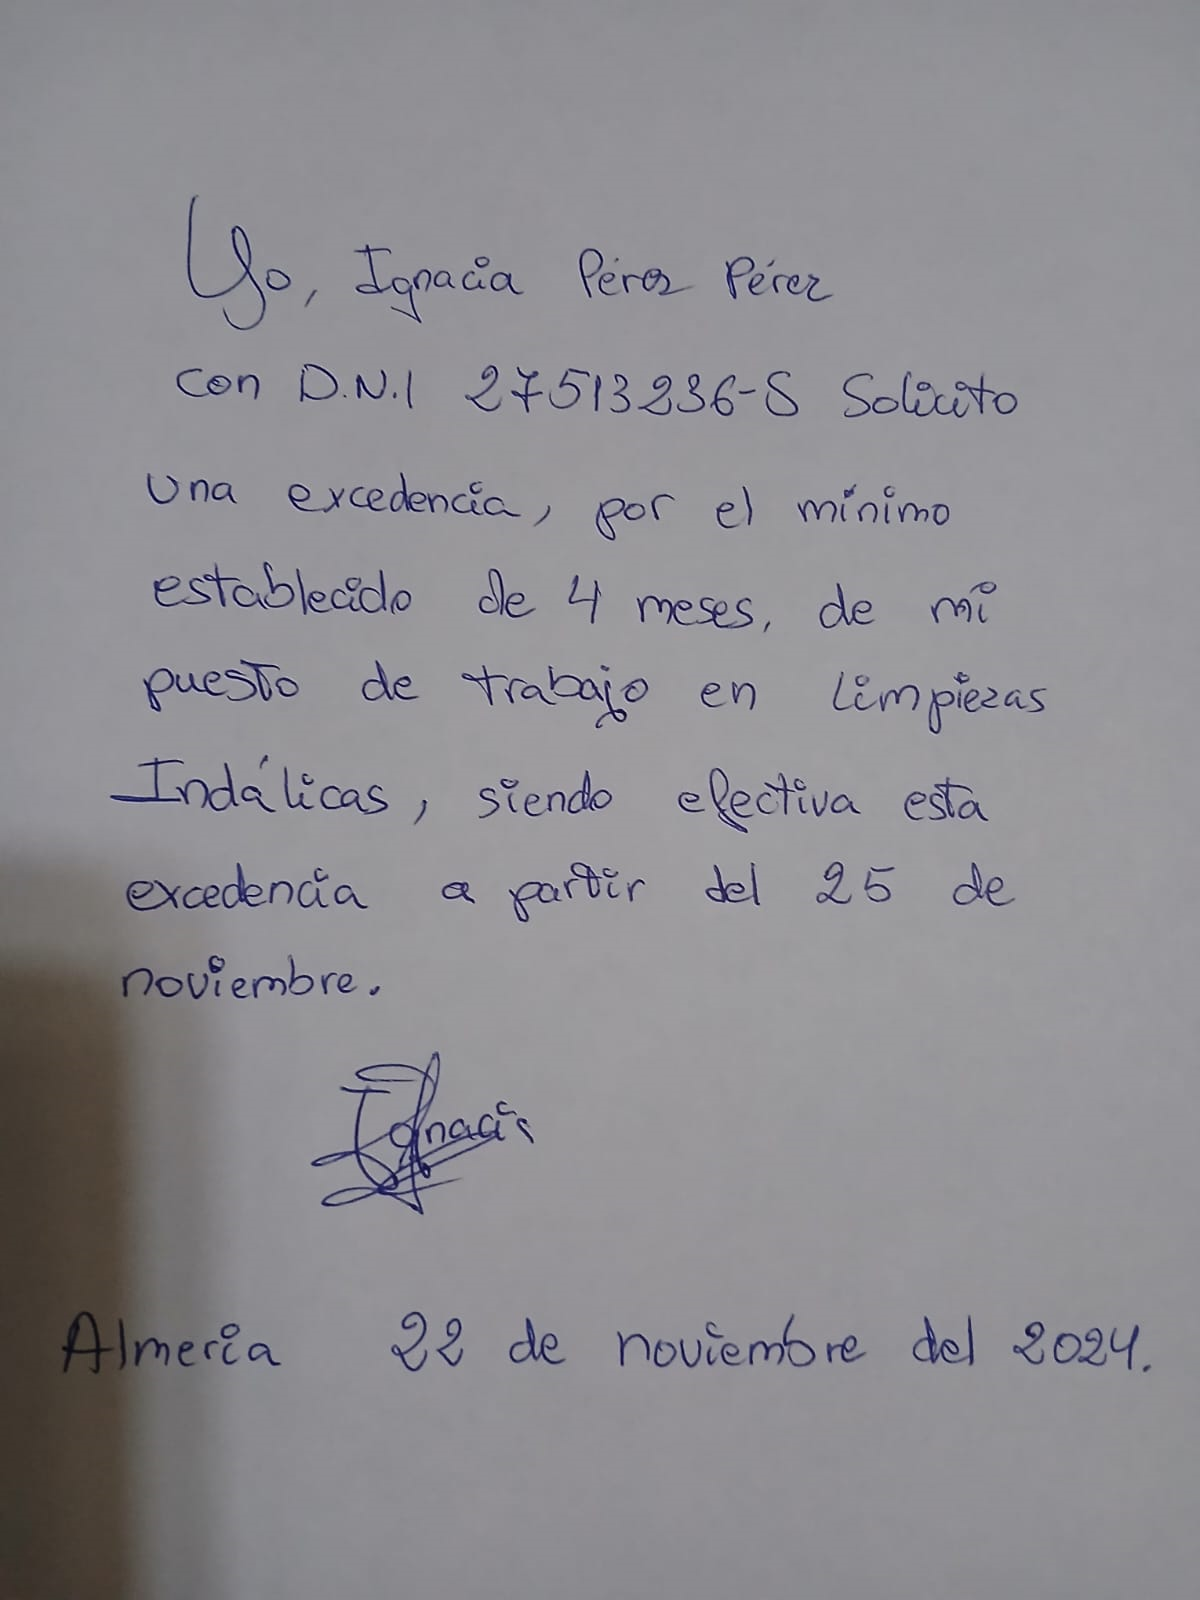 Yo, Ignacia Pérez Pérez
con D.N.I 27513236-S Solicito
una excedencia, por el mínimo
establecido de 4 meses, de mi
puesto de trabajo en Limpiezas
Indálicas, siendo efectiva esta
excedencia a partir del 25 de
noviembre.
Ignacia
Almeria 22 de noviembre del 2024.